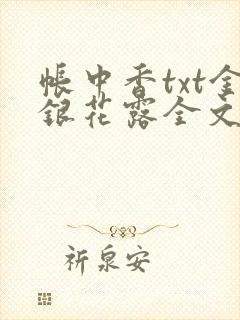 帐中香txt金
银花露全文
祈泉安